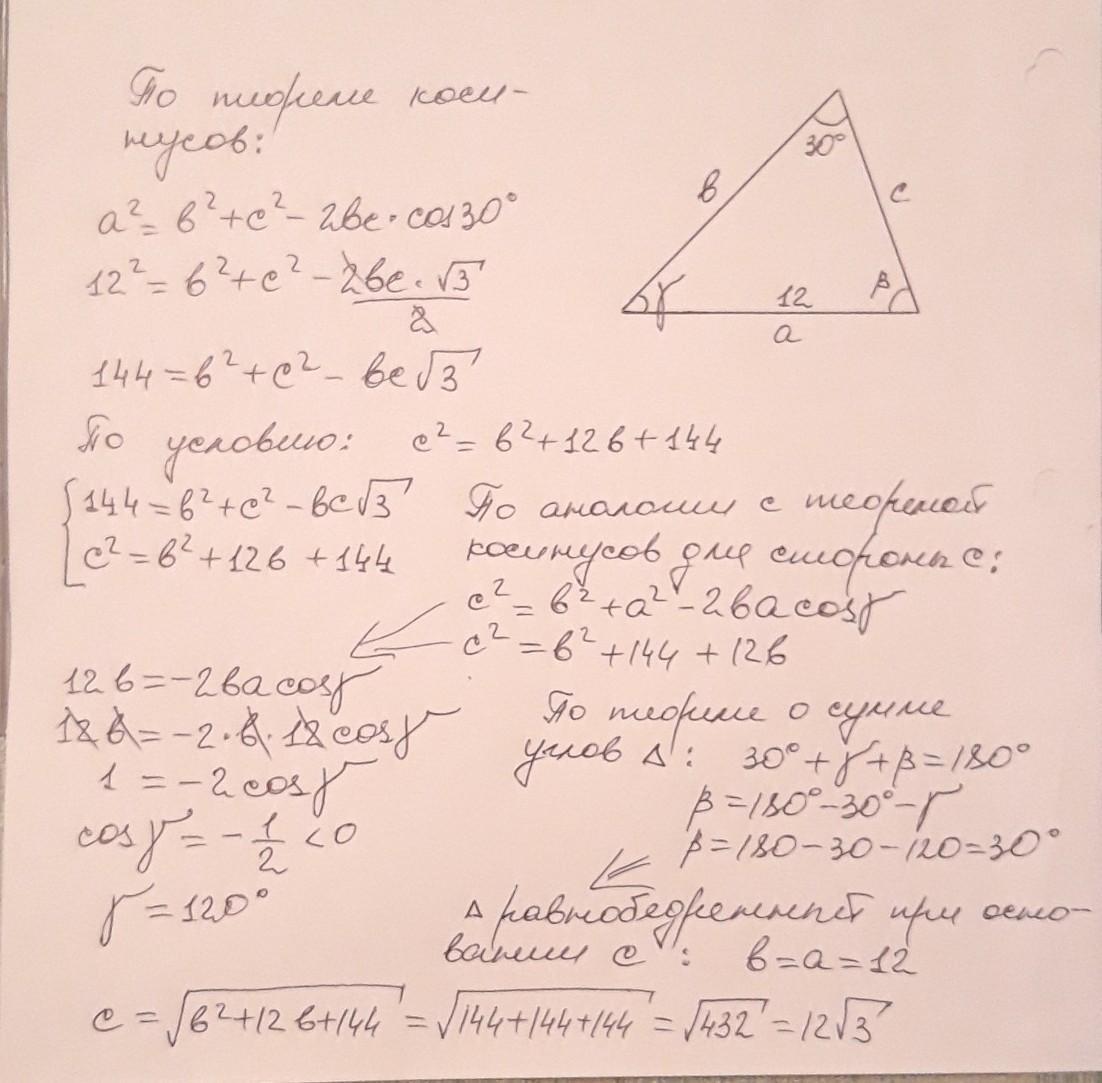 По теореме коси-
нусов:
a² = b² + c² - 2bc · cos30°
12² = b² + c² - 2bc · √3 / 2
144 = b² + c² - bc√3
30°
b
c
γ
12
β
a
По условию: c² = b² + 12b + 144
{ 144 = b² + c² - bc√3
c² = b² + 12b + 144
По аналогии с теоремой
косинусов для стороны c:
c² = b² + a² - 2ba cosγ
c² = b² + 144 + 12b
12b = -2ba cosγ
12b = -2 · b · 12 cosγ
1 = -2cosγ
cosγ = -1/2 < 0
γ = 120°
По теореме о сумме
углов Δ: 30° + γ + β = 180°
β = 180° - 30° - γ
β = 180 - 30 - 120 = 30°
Δ равнобедренный при осно-
вании c: b = a = 12
c = √(b² + 12b + 144) = √(144 + 144 + 144) = √432 = 12√3